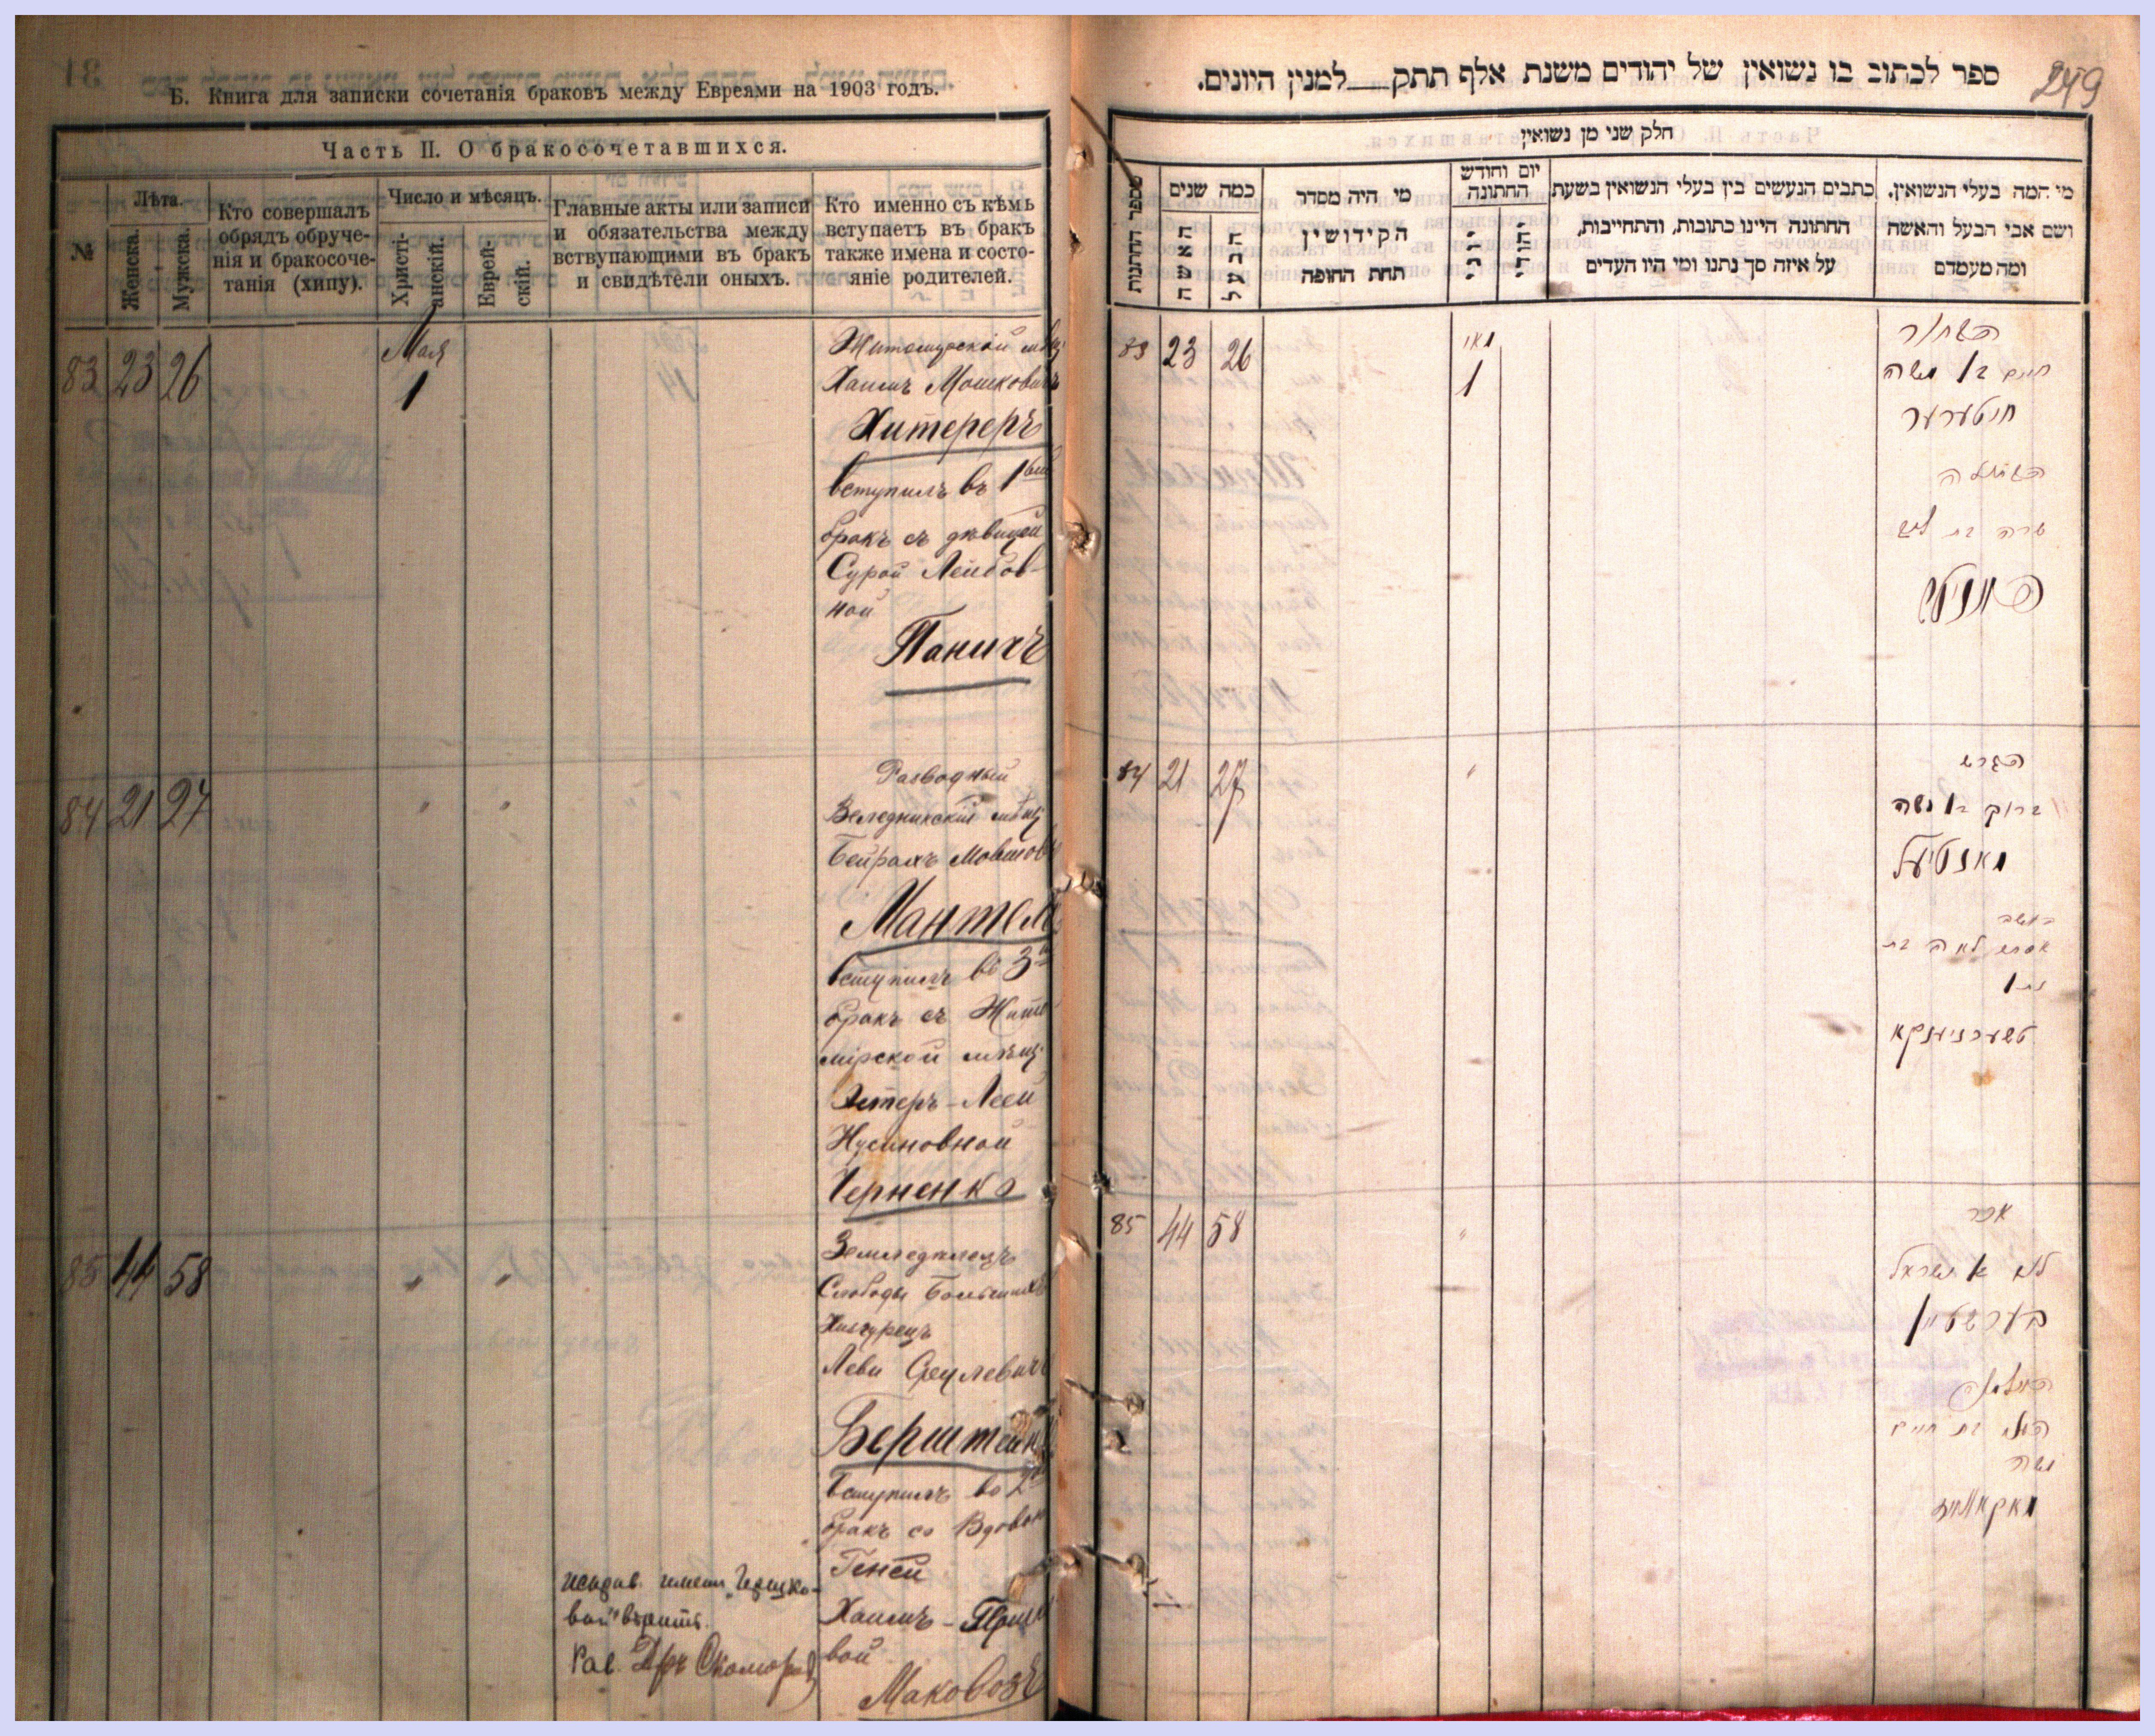 Б. Книга для записки сочетанія браковъ между Евреями на 1903 годъ.
Часть II. О бракосочетавшихся.
№
Лѣта.
Женска.
Мужска.
Кто совершалъ
обрядъ обруче-
нія и бракосоче-
танія (хипу).
Число и мѣсяцъ.
Христі-
анскій.
Еврей-
скій.
Главные акты или записи
и обязательства между
вствупающими въ бракъ
и свидѣтели оныхъ.
Кто именно съ кѣмъ
вступаетъ въ бракъ
также имена и состо-
яніе родителей.
83 23 26
Мая
1
Житомірскій мѣщ
Хаимъ Мошковичъ
Хитереръ
вступилъ въ 1ый
бракъ съ дѣвицей
Сурой Лейбов-
ной
Паничъ
84 21 27
" "
Разводный
Веледникскій мѣщ
Мовшов
Мантель
вступилъ въ 3й
бракъ съ Жито
мірской мѣщ.
Эстеръ-Леей
Нусиновной
Черненко
85 44 58
" "
Земледѣлецъ
Слободы
Леви Срулевичъ
Берштейнъ
вступилъ во 2й
бракъ со Вдовой
Геней
Хаимъ-
вой
Маковозъ
исправ. имени
вой" вѣрить.
Рав.
ספר לכתוב בו נשואין של יהודים משנת אלף תתק___למנין היונים.
249
חלק שני מן נשואין
מספר החתנות
כמה שנים
האשה
הבעל
מי היה מסדר
הקידושין
תחת החופה
יום וחודש
החתונה
יוני
יהודי
כתבים הנעשים בין בעלי הנשואין בשעת
החתונה היינו כתובות, והתחייבות,
על איזה סך נתנו ומי היו העדים
מי המה בעלי הנשואין,
ושם אבי הבעל והאשה
ומה מעמדם
83 23 26
מאי
1
הבחור
חיים בן משה
חיטערער
הבתולה
שרה בת ליב
פאניטש
84 21 27
"
הגרוש
ברוך בן משה
מאנטיעל
האשה
אסתר לאה בת
נתן
טשערניענקא
85 44 58
"
לוי בן ישראל
בערשטיין
האלמנה
בת חיים
משה
מאקאוויז